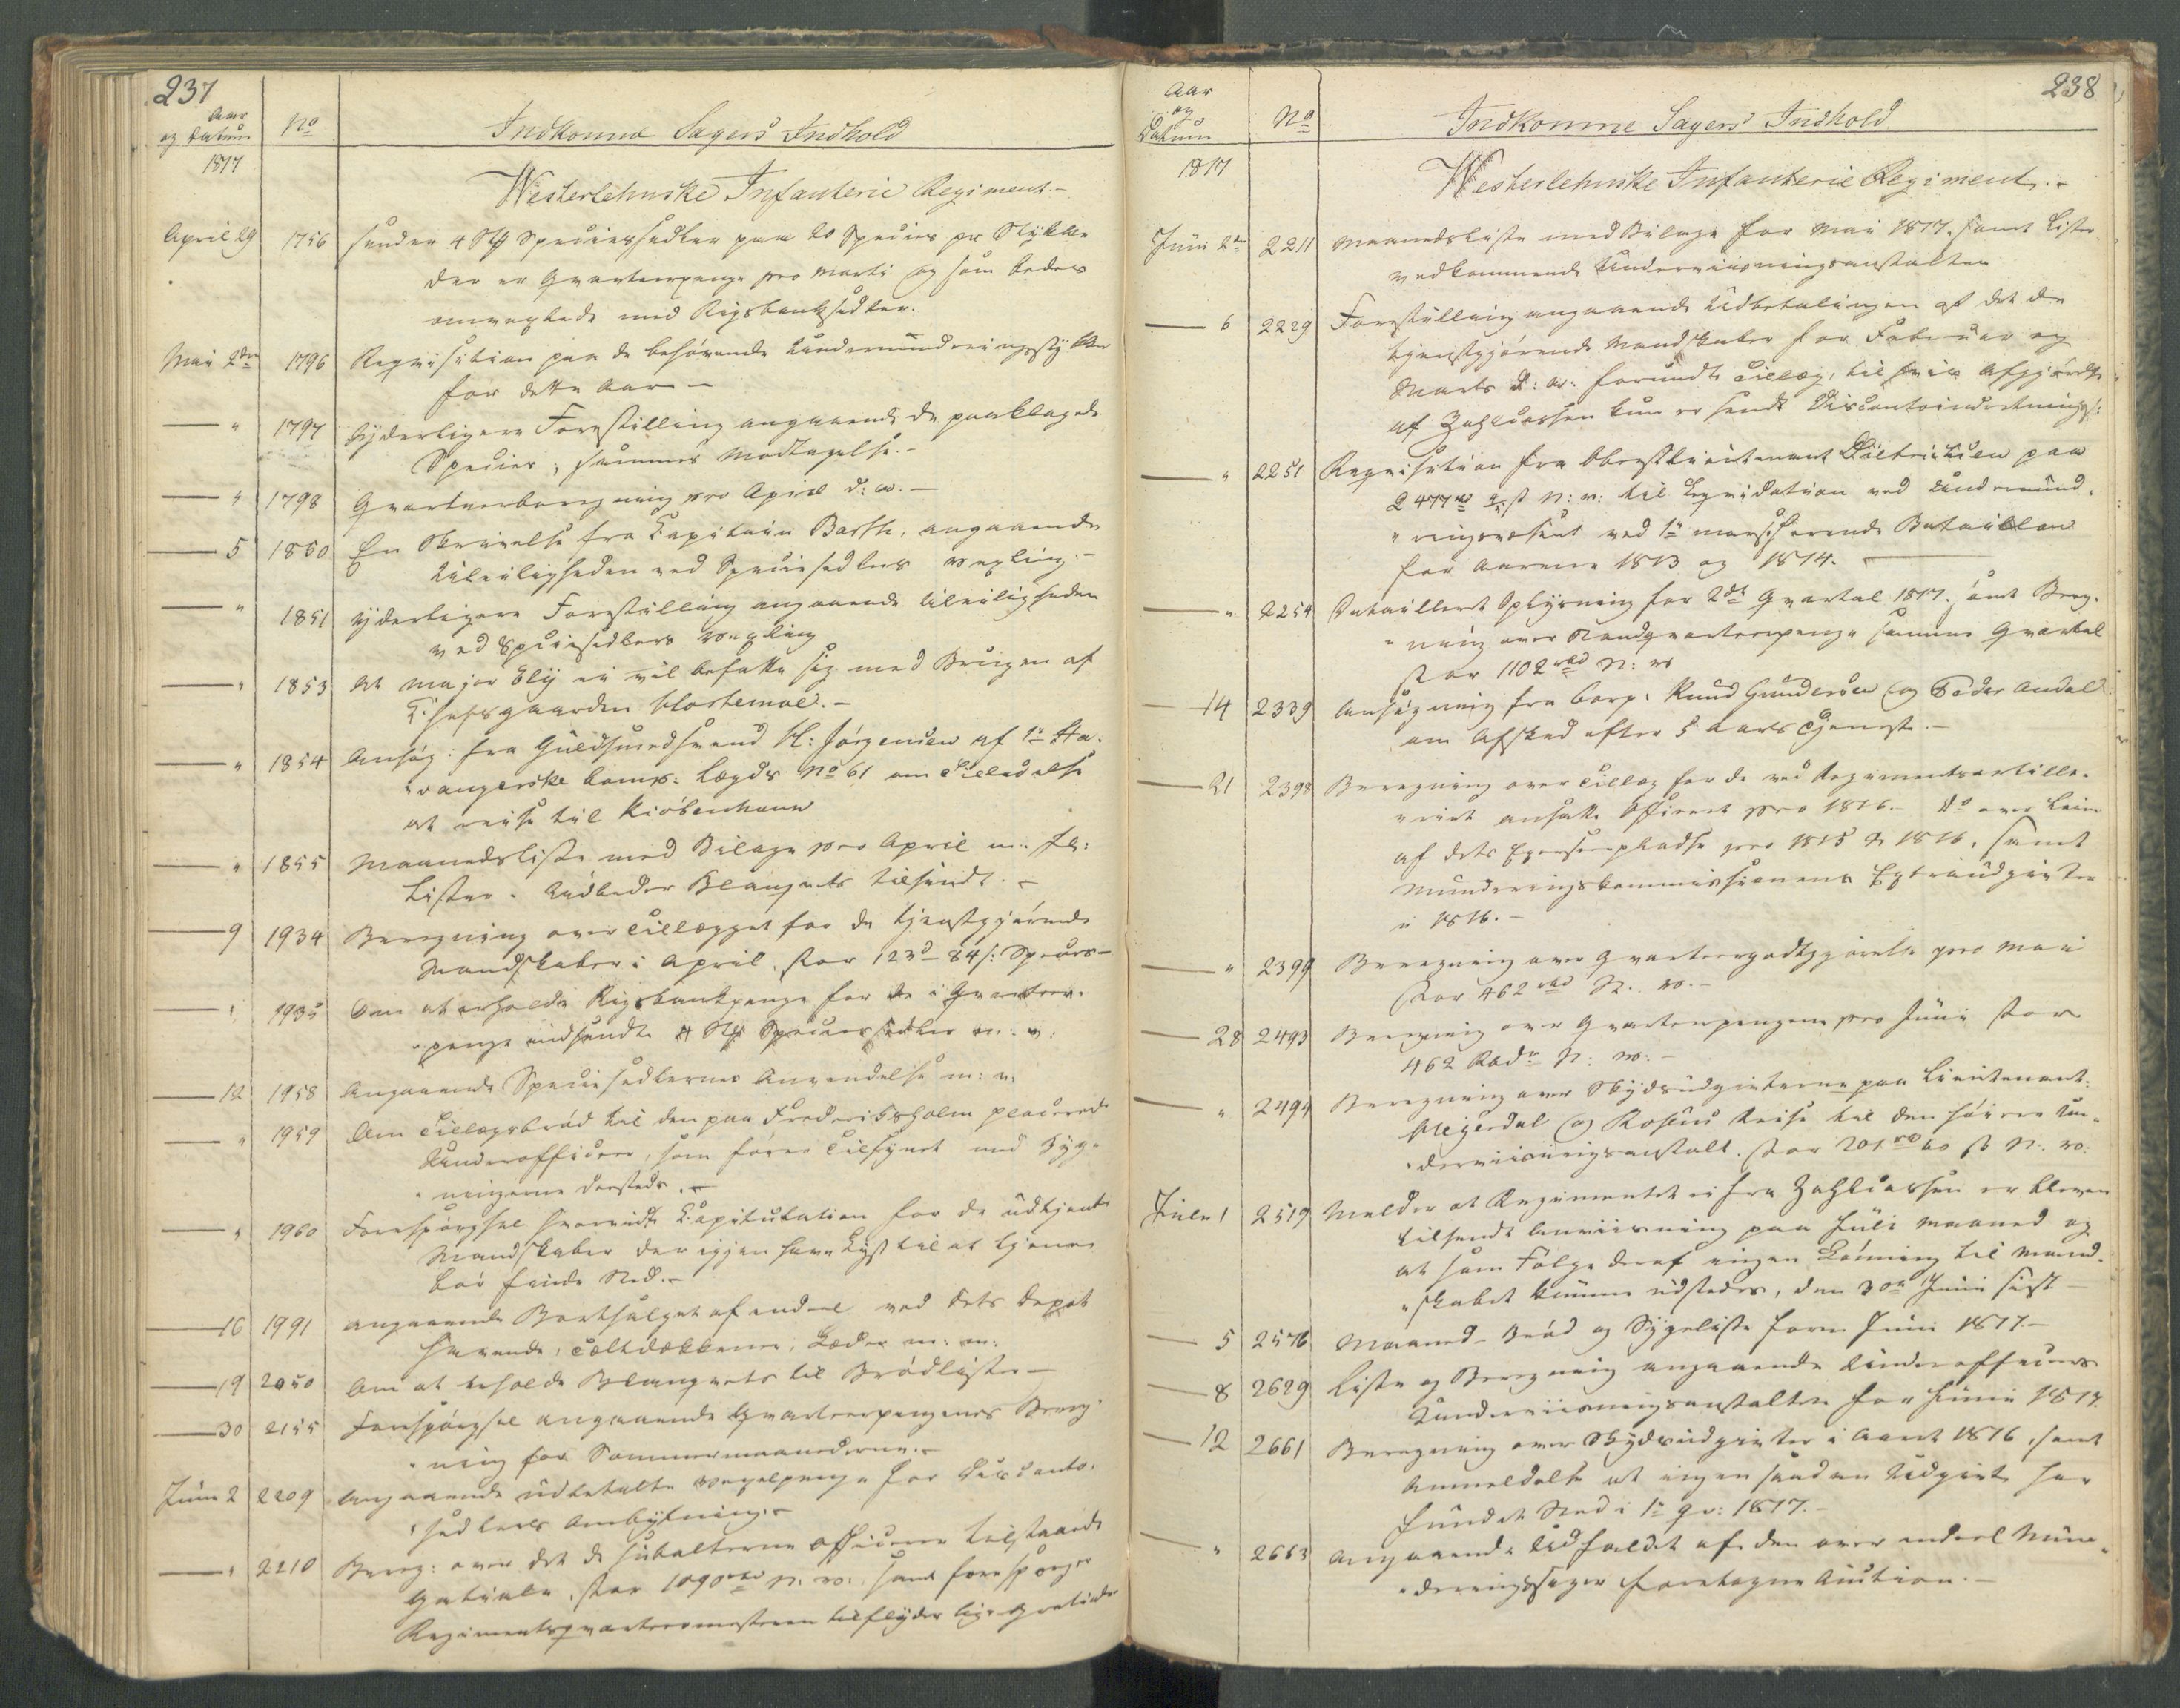 237
Aar
og Datum
No
Indkomne Sagers Indhold
1817
Westerlehnske Infanterie Regiment.-
April 29 1756 sender 4 Stk Speciessedler paa 20 Species pr Stykke
der er Qvarteerpenge pro Marti og som bedes
omvexlede med Rigsbanksedler.
Mai 2den 1796 Reqvisition paa de behövende Undermunderingsstykker
for dette Aar.-
— " 1797 Yderligere Forestilling angaaende de paaklagede
Species, sammes Modtagelse.-
— " 1798 Qvarteerberegning pro April d: A.-
— 5 1850 En Skrivelse fra Capitain Barth, angaaende
Uleiligheden ved Speciesedlers vexling.-
— " 1851 yderligere Forestilling angaaende Uleiligheden
ved Speciesedlers vexling
— " 1853 At Major Ely ei vil befatte sig med Brugen af
Chefsgaarden Klostemoe.-
— " 1854 Ansög: fra Guldsmedsvend H: Jörgensen af 1ste Sta-
"vangerske Comp: Lægds No 61 om Tilladelse
at reise til Kiöbenhavn
— " 1855 Maanedsliste med Bilage pro April m. fl:
Lister. Udbeder Blanqvets tilsendt.-
— 9 1934 Beregning over Tillægget for de tjenstgjörende
Mandskaber i April, stor 123 d 84 s: Species-
— " 1935 Om at erholde Rigsbankpenge for de i Qvarteer-
"penge indsendte 4 Stk Speciessedler m: v:
— 12 1958 Angaaende Speciesedlernes Anvendelse m: v.
— " 1959 Om Tillægsbröd til den paa Fredriksholm placerede
Underofficeer, som förer Tilsynet med Byg-
"ningerne dersteds.-
— " 1960 Forespörgsel hvorvidt Capitulation for de udtjente
Mandskaber der igjen have Lyst til at tjene
bör finde Sted.-
— 16 1991 angaaende Bortsalget af endeel ved dets Depot
havende, Teltdækkener, Læder m: m:
— 19 2050 Om at erholde Blanqvets til Brödlister-
— 30 2155 Forespörgsel angaaende Qvarteerpengenes Bereg-
"ning for Sommermaanederne.-
Juni 2 2209 Angaaende udbetalte Vexelpenge for Disconto-
"sedlers Ombytning.-
— " 2210 Bereg: over det de subalterne Officerer tilstaaede
Gratiale, stor 1090 rbd N. v., samt forespörger
Regimentsqvarteermesteren tilflyder lige Gratiale
238
Aar
og
Datum
No
Indkomne Sagers Indhold
1817
Westerlehnske Infanterie Regiment.-
Juni 2den 2211 Maanedsliste med Bilage for Mai 1817, samt Lister
vedkommende Underviisningsanstalten
— 6 2229 Forestilling angaaende Udbetalingen af det de
tjenstgjörende Mandskaber for Februar og
Marts d: A: forundte Tillæg, til hvis Afgjörelse
af Zahlcassen kun er sendt
— " 2251 Reqvisition fra Oberstlieutenant Dietrichsen paa
2477 rbd N: v: til Liqvidation ved Undermund-
"ringsvæsenet ved 1ste marscherende Bataillon
for Aarene 1813 og 1814.
— " 2254 Detailleret Oplysning for 2det Qvartal 1817. samt Bereg-
"ning over Standqvarteerpenge samme Qvartal
stor 1102 rbd N: v:
— 14 2339 Ansögning fra Corp: Knud Gundersen og Peder Andal
om Afsked efter 5 Aars Tjeneste.-
— 21 2398 Beregning over Tillæg for de ved Regimentsartille-
"riet ansatte Officerer pro 1816. do over Leie
af dets Exerseerpladse pro 1815 & 1816, samt
Munderingskommissionens Extraudgivter
i 1816.-
— " 2399 Beregning over Qvarteergodtgjörelse pro Mai
stor 462 rbd N. v.-
— 28 2493 Beregning over Qvarteerpengene pro Juni stor
462 Rbdr N: v:-
— " 2494 Beregning over Skydsudgivterne paa Lieutenant:
Meijerdal og Rosens Reise til den höiere Un-
"derviisningsanstalt. stor 201 rbd 60 s N: v:
Juli 1 2519 Melder at Regimentet ei fra Zahlcassen er bleven
tilsendt Anviisning paa Juli Maaned og
at som Fölge deraf ingen Lönning til Mand-
"skabet kunne udstedes, den 30te Juni sidst-
— 5 2576 Maaned- Bröd og Sygeliste for Juni 1817.-
— 8 2629 Liste og Beregning angaaende Underofficeers
Underviisningsanstalten for Juni 1817.
— 12 2661 Beregning over Skydsudgivter i Aaret 1816, samt
Anmeldelse at ingen saadan Udgivt har
fundet Sted i 1ste Qv: 1817.-
— " 2663 Angaaende Udfaldet af den over endeel Mun-
"deringssager foretagne Auction.-